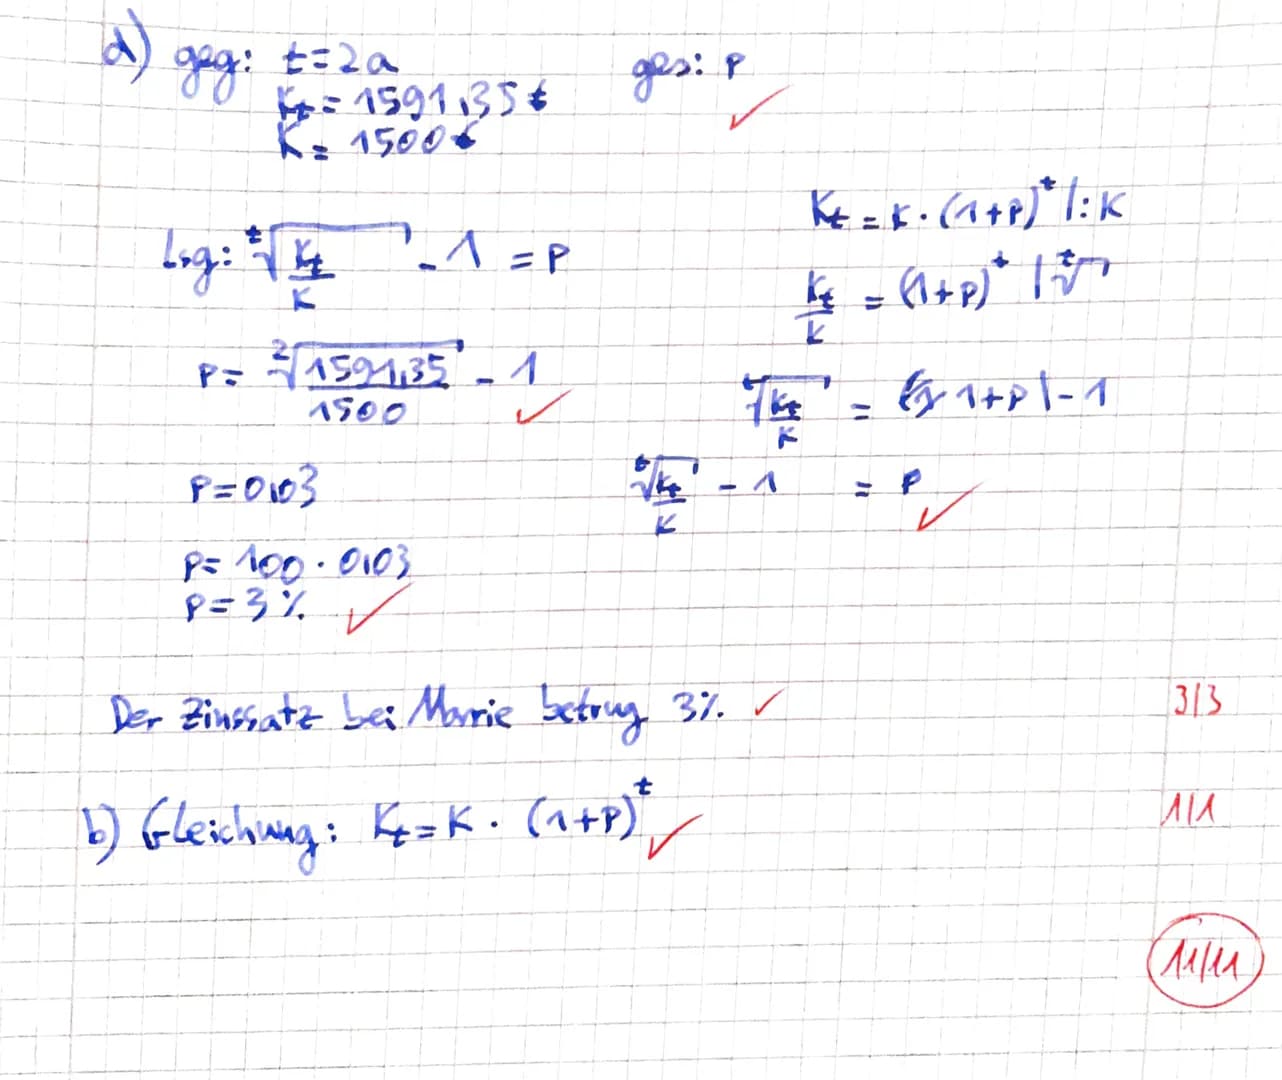 d) geg: t=2a ges: p
Kt = 1591,35€
K = 1500€
Kt = K · (1+p)^t |: K
Lsg: ^t√(Kt/K) - 1 = p
Kt/K = (1+p)^t | ^t√
p = ^2√(1591,35/1500) - 1
^t√(Kt/K) = 1+p | - 1
p = 0,03
^t√(Kt/K) - 1 = p
p = 100 · 0,03
p = 3 %
Der Zinssatz bei Marie betrug 3%. 3/3
b) Gleichung: Kt = K · (1+p)^t 1/1
11/11